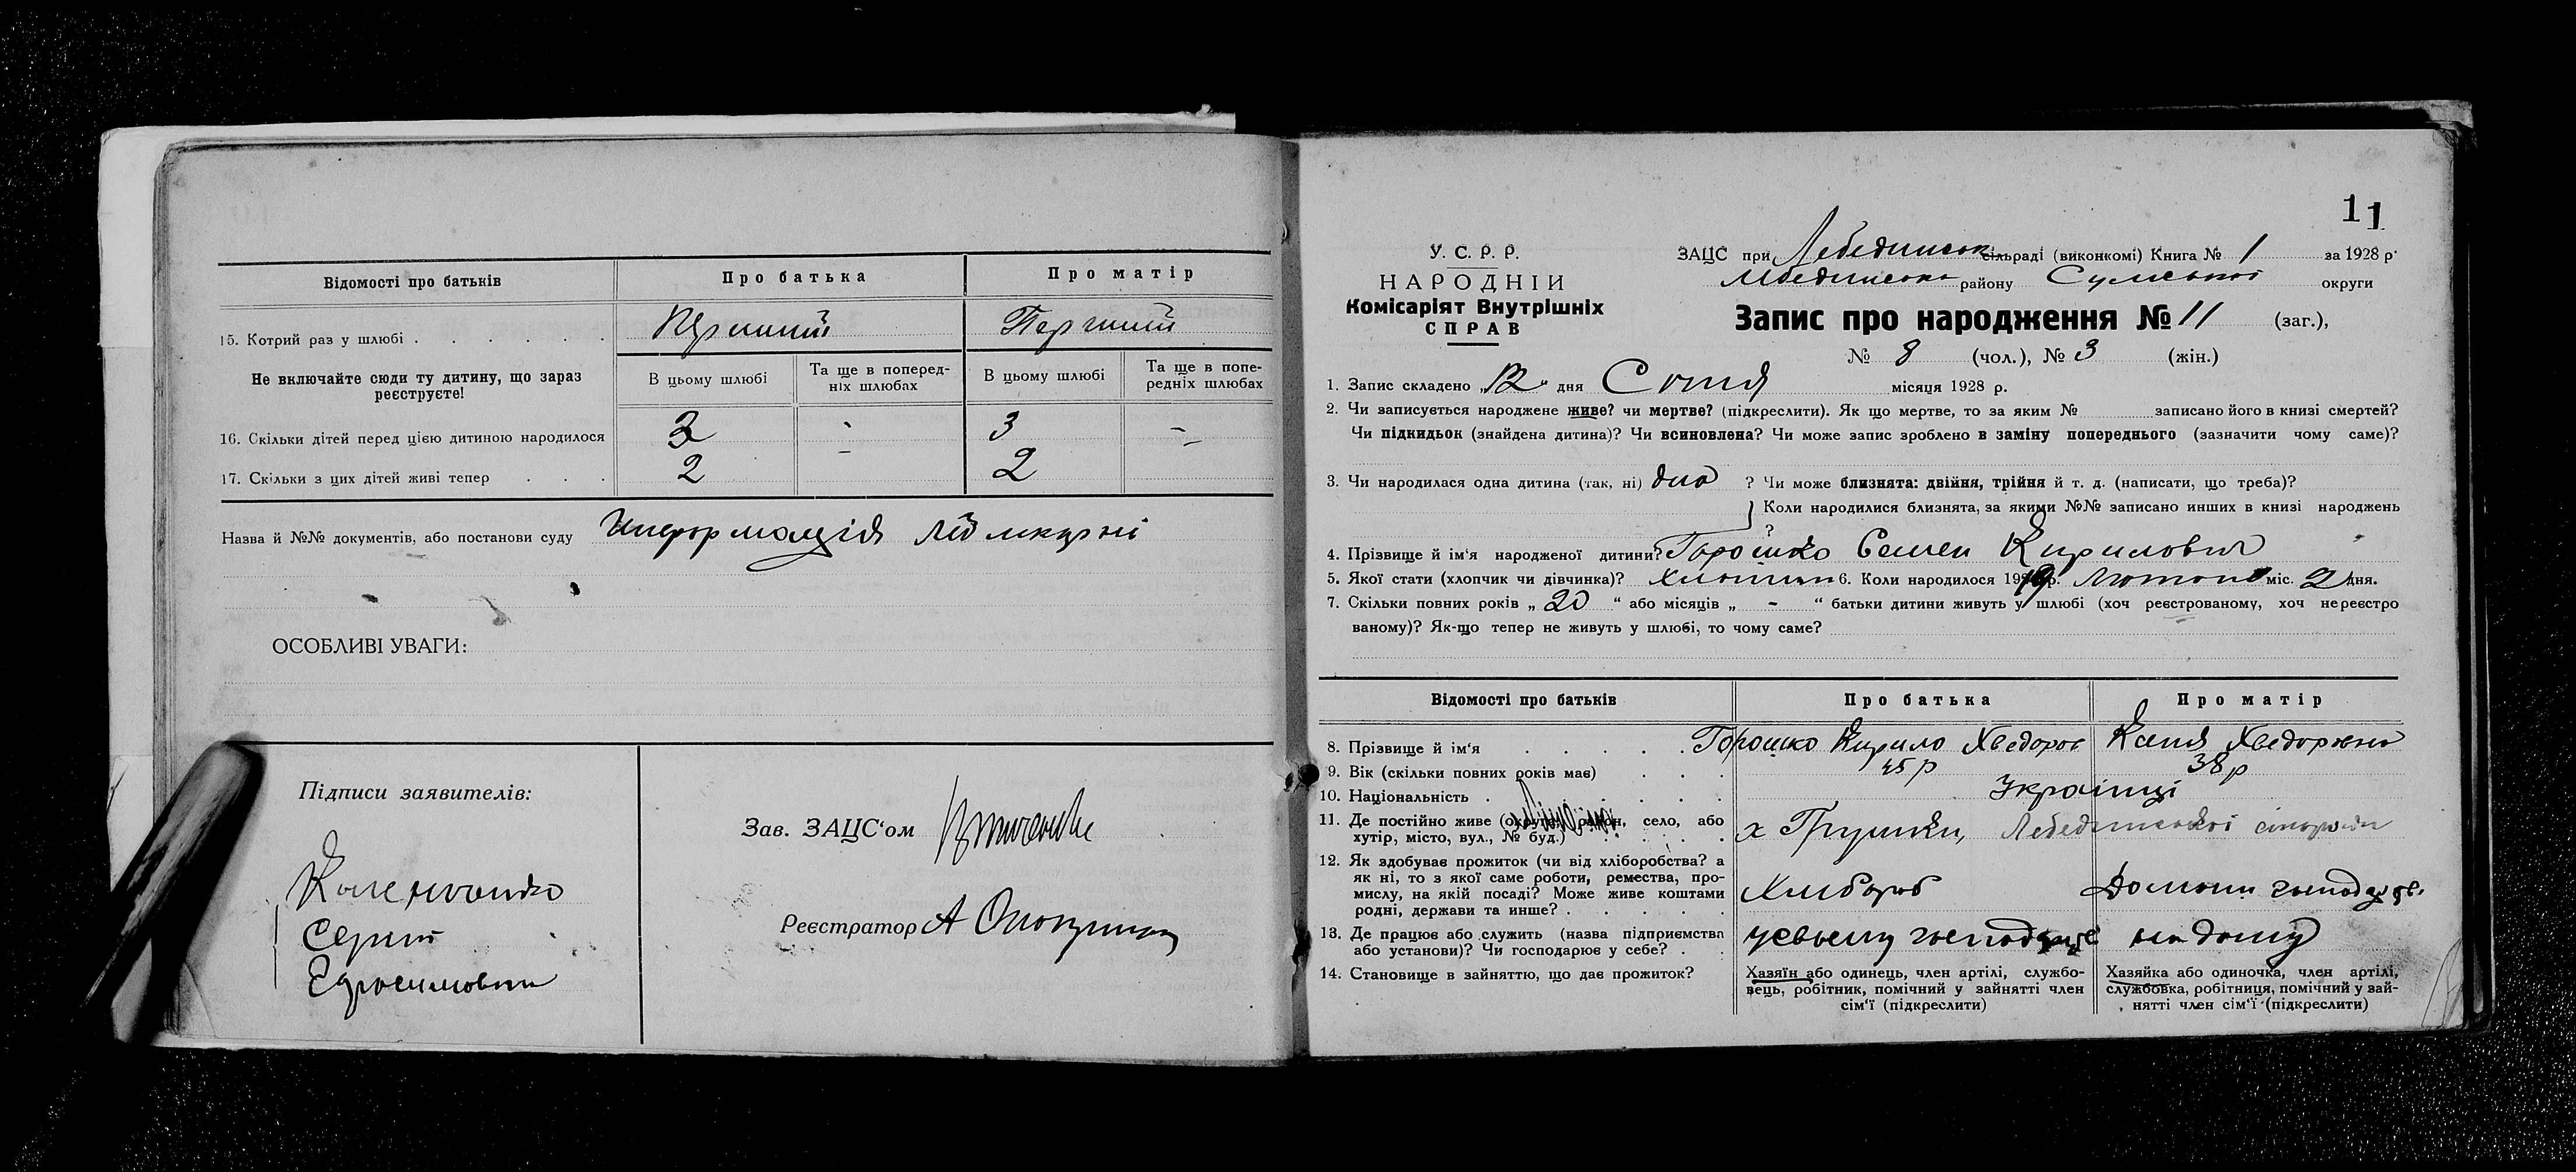 Відомості про батьків
Про батька
Про матір
15. Котрий раз у шлюбі
Перший
Перший
Не включайте сюди ту дитину, що зараз реєструєте!
В цьому шлюбі
Та ще в поперед-
ніх шлюбах
В цьому шлюбі
Та ще в попе-
редніх шлюбах
16. Скільки дітей перед цією дитиною народилося
3
-
3
-
17. Скільки з цих дітей живі тепер . . .
2
-
2
-
Назва й №№ документів, або постанови суду
ОСОБЛИВІ УВАГИ:
Підписи заявителів:
Зав. ЗАЦС‘ом
Реєстратор А
11
У. С. Р. Р.
НАРОДНІЙ
Комісаріят Внутрішніх
СПРАВ
ЗАЦС при Лебединськ сільраді (виконкомі) Книга № 1 за 1928 р.
Лебединськ району Сумської округи
Запис про народження № 11 (заг.),
№ 8 (чол.), № 3 (жін.)
1. Запис складено „12“ дня Січня місяця 1928 р.
2. Чи записується народжене живе? чи мертве? (підкреслити). Як що мертве, то за яким № записано його в книзі смертей?
Чи підкидьок (знайдена дитина)? Чи всиновлена? Чи може запис зроблено в заміну попереднього (зазначити чому саме)?
3. Чи народилася одна дитина (так, ні) ? Чи може близнята: двійня, трійня й т. д. (написати, що треба)?
Коли народилися близнята, за якими №№ записано инших в книзі народжень
?
4. Прізвище й ім‘я народженої дитини? Горошко Семен Кирилович
5. Якої стати (хлопчик чи дівчинка)? 6. Коли народилося 19 р. Лютого міс. 2 дня.
7. Скільки повних років „ 20 “ або місяців „ - “ батьки дитини живуть у шлюбі (хоч реєстрованому, хоч нереєстро
ваному)? Як-що тепер не живуть у шлюбі, то чому саме?
Відомості про батьків
Про батька
Про матір
8. Прізвище й ім‘я . . . . .
Горошко Кирило Хведоров
Хведоровна
9. Вік (скільки повних років має) . . .
45 р
38 р
10. Національність . . . . .
Українці
11. Де постійно живе (округа, район, село, або
хутір, місто, вул., № буд.) . . . .
х Грушки, Лебединської сільради
12. Як здобуває прожиток (чи від хліборобства? а
як ні, то з якої саме роботи, ремества, про-
мислу, на якій посаді? Може живе коштами
родні, держави та инше? . . . . .
Хлібороб
13. Де працює або служить (назва підприємства
або установи)? Чи господарює у себе? . .
на дому
14. Становище в зайняттю, що дає прожиток?
Хазяїн або одинець, член артілі, службо-
вець, робітник, помічний у зайнятті член
сім‘ї (підкреслити)
Хазяйка або одиночка, член артілі,
службовка, робітниця, помічний у зай-
нятті член сім‘ї (підкреслити)